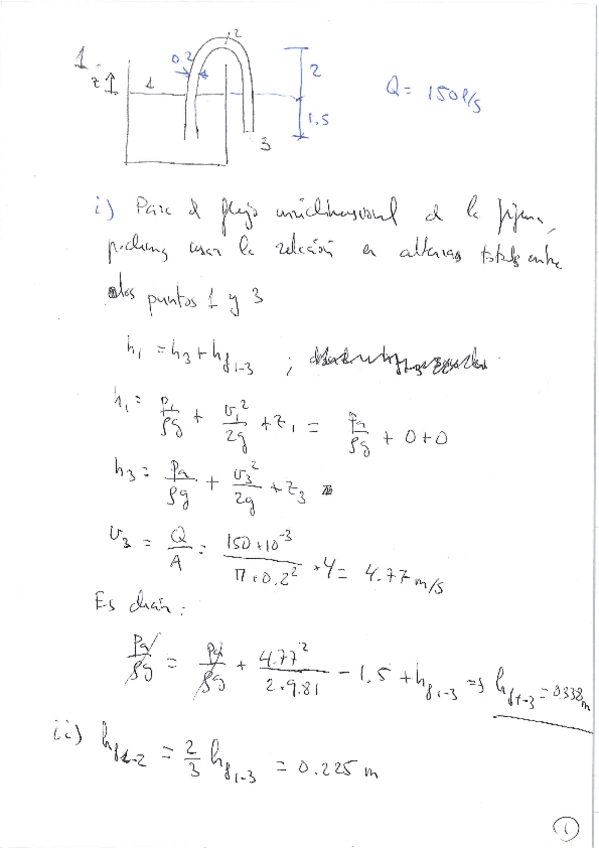 1.
z
1
0.2
2
3
2
1.5
Q = 150 l/s
i) Para el flujo unidimensional de la figura,
podemos usar la relación en alturas totales entre
los puntos 1 y 3
h₁ = h₃ + h_f₁₋₃ ;
h₁ = p₁/ρg + v₁²/2g + z₁ = pa/ρg + 0 + 0
h₃ = pa/ρg + v₃²/2g + z₃
v₃ = Q/A = 150*10⁻³/π*0.2² *4 = 4.77 m/s
Es decir:
pa/ρg = pa/ρg + 4.77²/2*9.81 - 1.5 + h_f₁₋₃ => h_f₁₋₃ = 0.338 m
ii) h_f₁₋₂ = 2/3 h_f₁₋₃ = 0.225 m
1